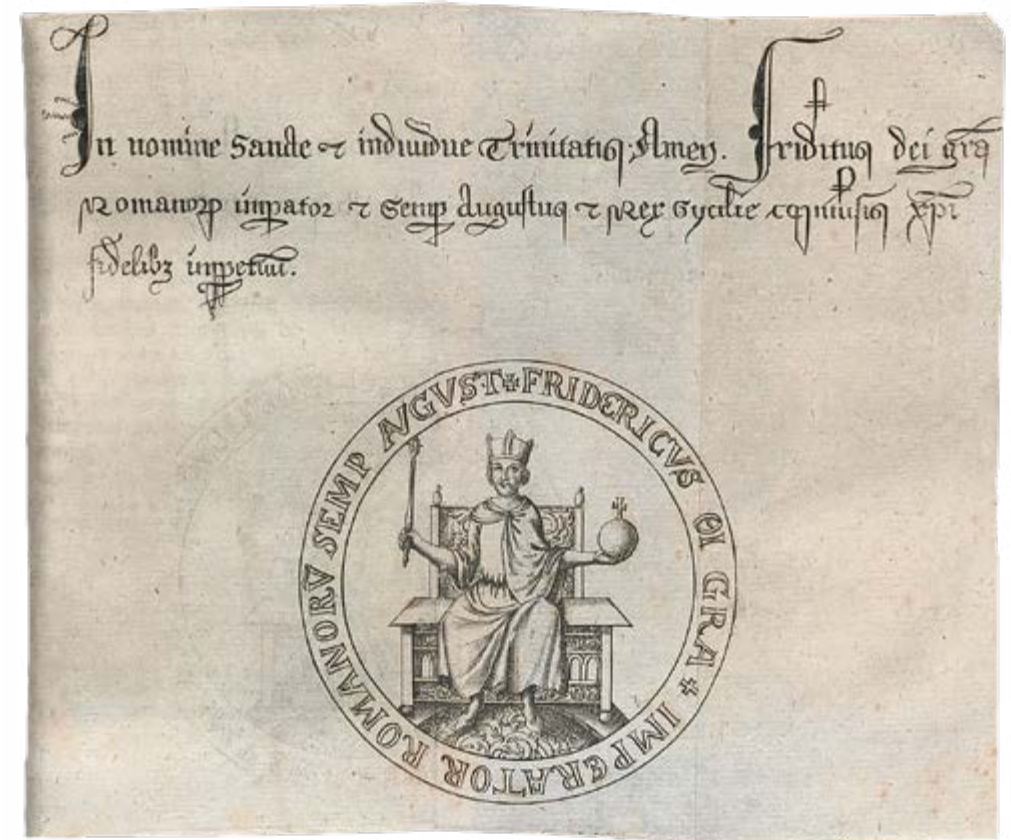 In nomine Sancte ⁊ individue Trinitatis, Amen. Fridericus dei gra
Romanoꝝ impator ⁊ Semp Augustus ⁊ Rex Sycilie xpi
fidelibꝫ impetuū.
✠ FRIDERICVS DI GRA ✠ IMPERATOR ROMANORV̄ SEMP AVGVST